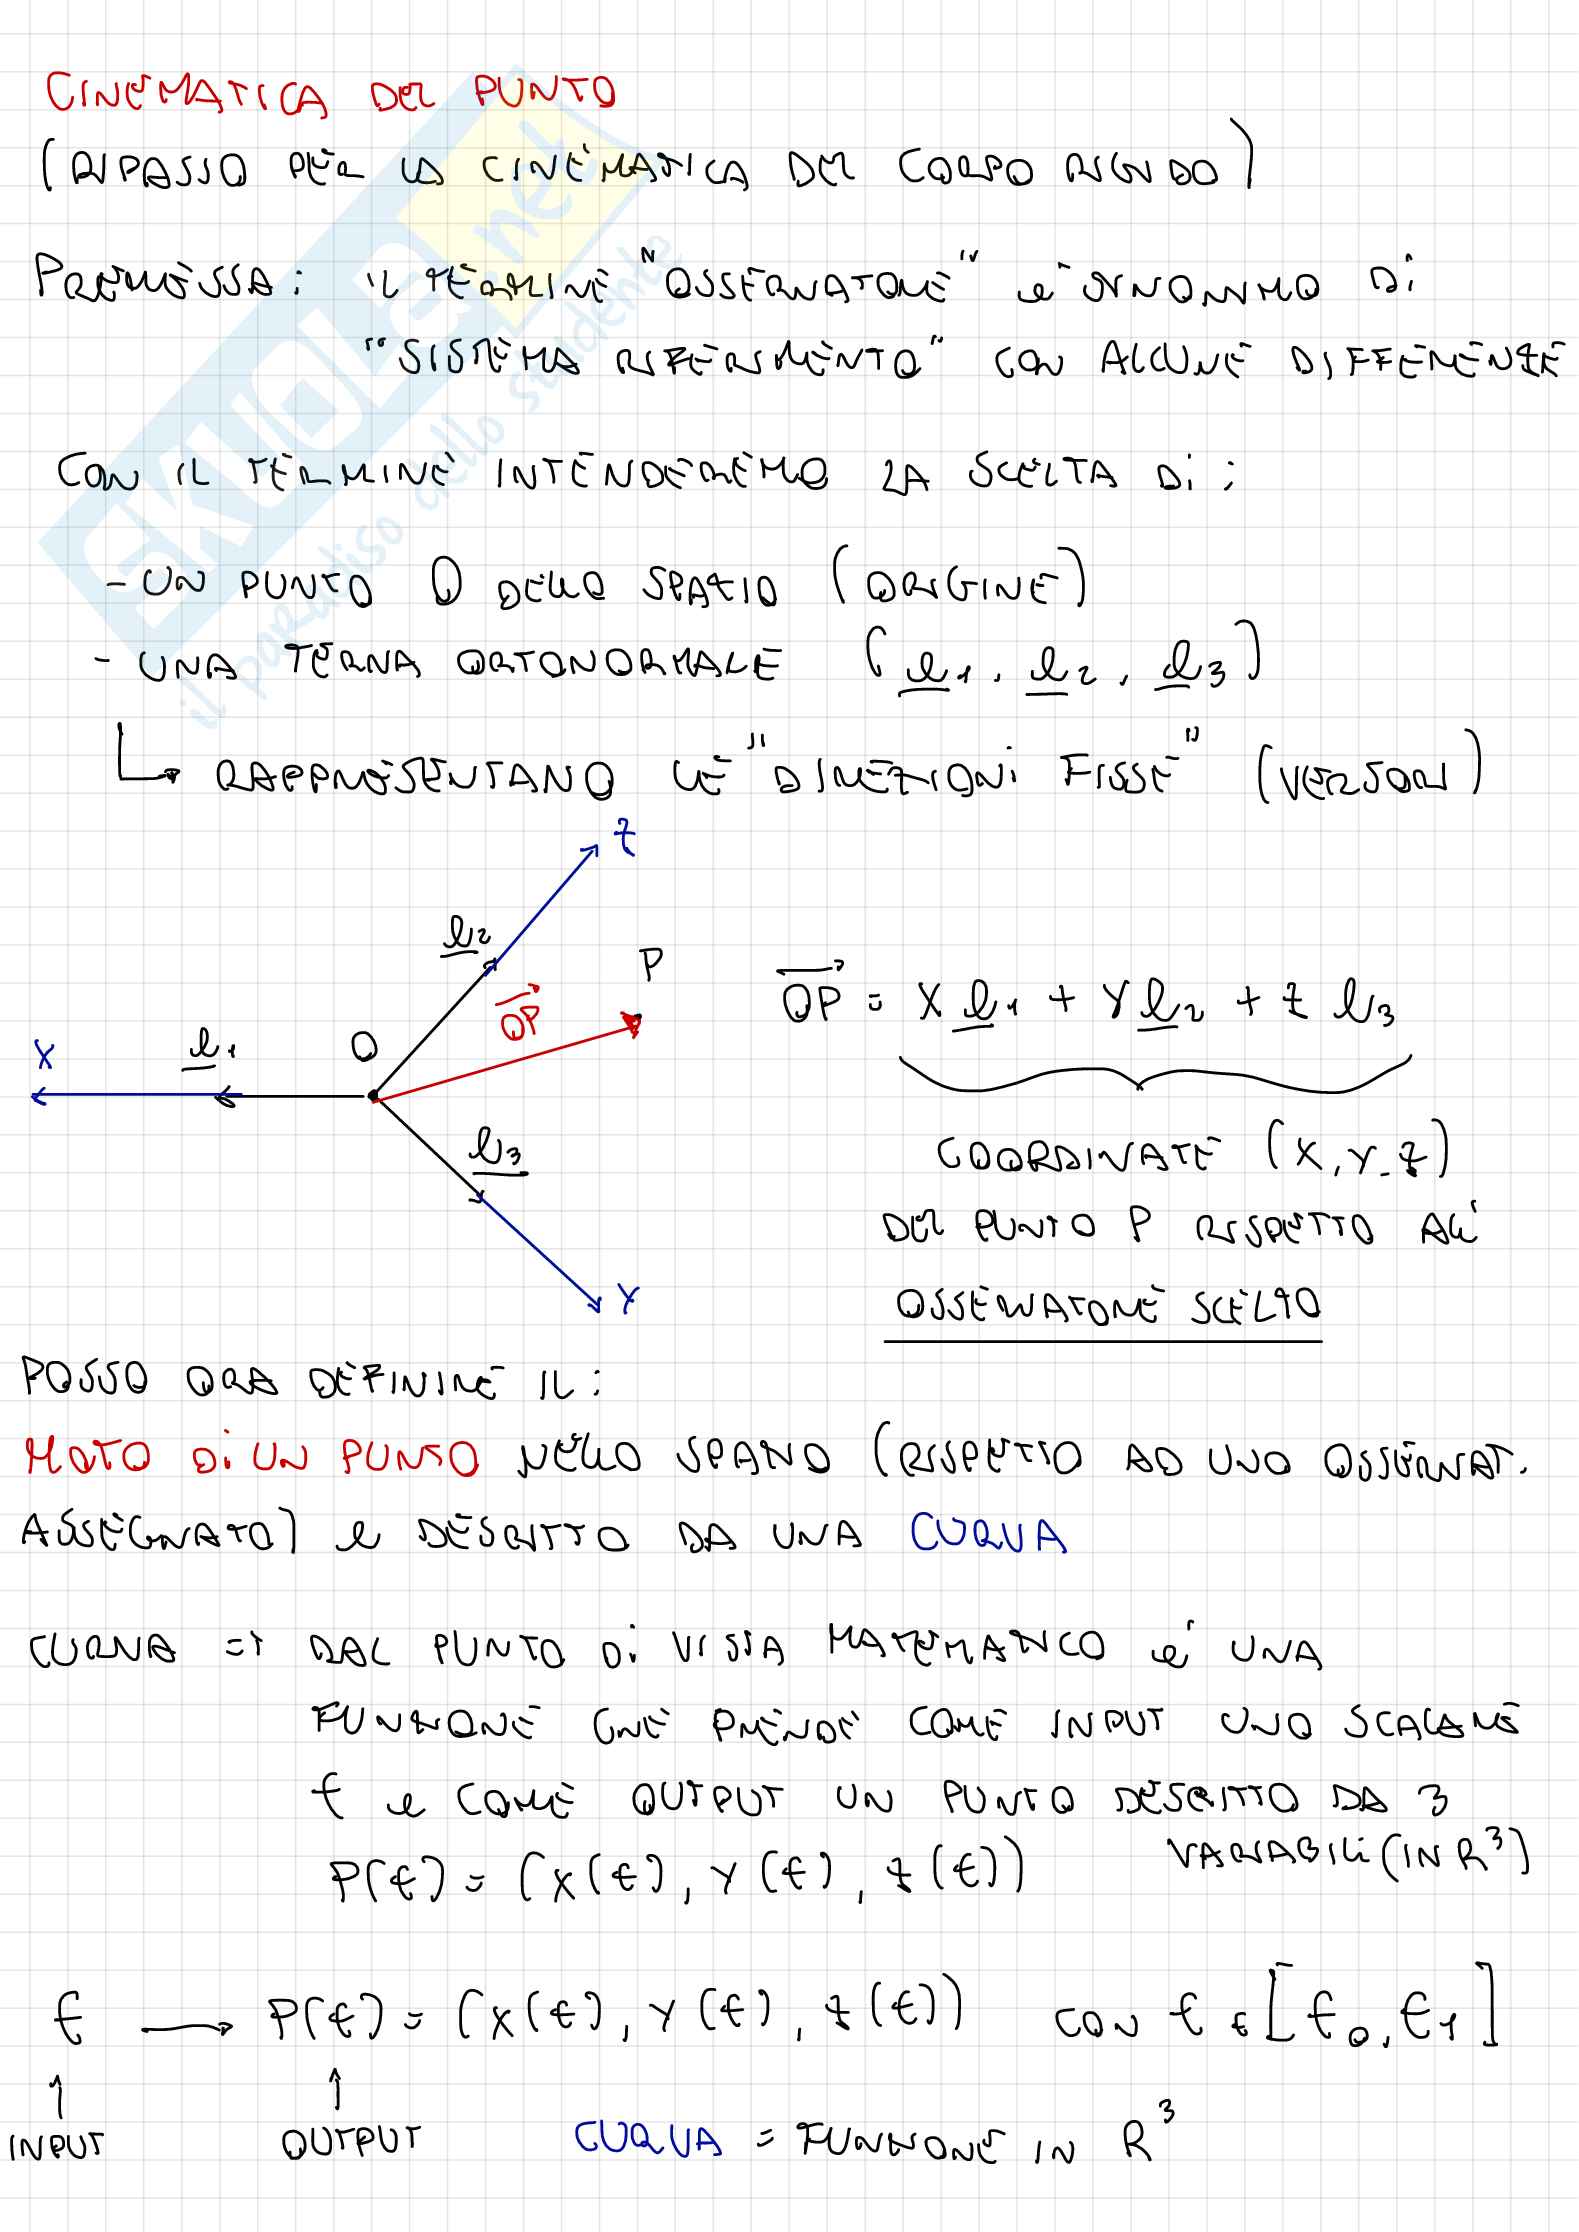 CINEMATICA DEL PUNTO
(RIPASSO PER LA CINEMATICA DEL CORPO RIGIDO)
PREMESSA: IL TERMINE "OSSERVATORE" è SINONIMO Di
"SISTEMA RIFERIMENTO" CON ALCUNE DIFFERENZE
CON IL TERMINE INTENDEREMO LA SCELTA Di:
- UN PUNTO O DELLO SPAZIO (ORIGINE)
- UNA TERNA ORTONORMALE (e1, e2, e3)
↳ RAPPRESENTANO LE "DIREZIONI FISSE" (VERSORI)
z
e2
P
OP
O
e1
X
e3
Y
OP = X e1 + Y e2 + z e3
COORDINATE (X, Y, z)
DEL PUNTO P RISPETTO ALL'
OSSERVATORE SCELTO
POSSO ORA DEFINIRE IL:
MOTO Di UN PUNTO NELLO SPAZIO (RISPETTO AD UNO OSSERVAT.
ASSEGNATO) e DESCRITTO DA UNA CURVA
CURVA => DAL PUNTO Di VISTA MATEMATICO è UNA
FUNZIONE CHE PRENDE COME INPUT UNO SCALARE
t e COME OUTPUT UN PUNTO DESCRITTO DA 3
VARIABILI (IN R³)
P(t) = (X(t), Y(t), z(t))
t → P(t) = (X(t), Y(t), z(t)) CON t ∈ [t0, t1]
↑ ↑
INPUT OUTPUT CURVA = FUNZIONE IN R³
SKUOLA.net
il paradiso dello studente